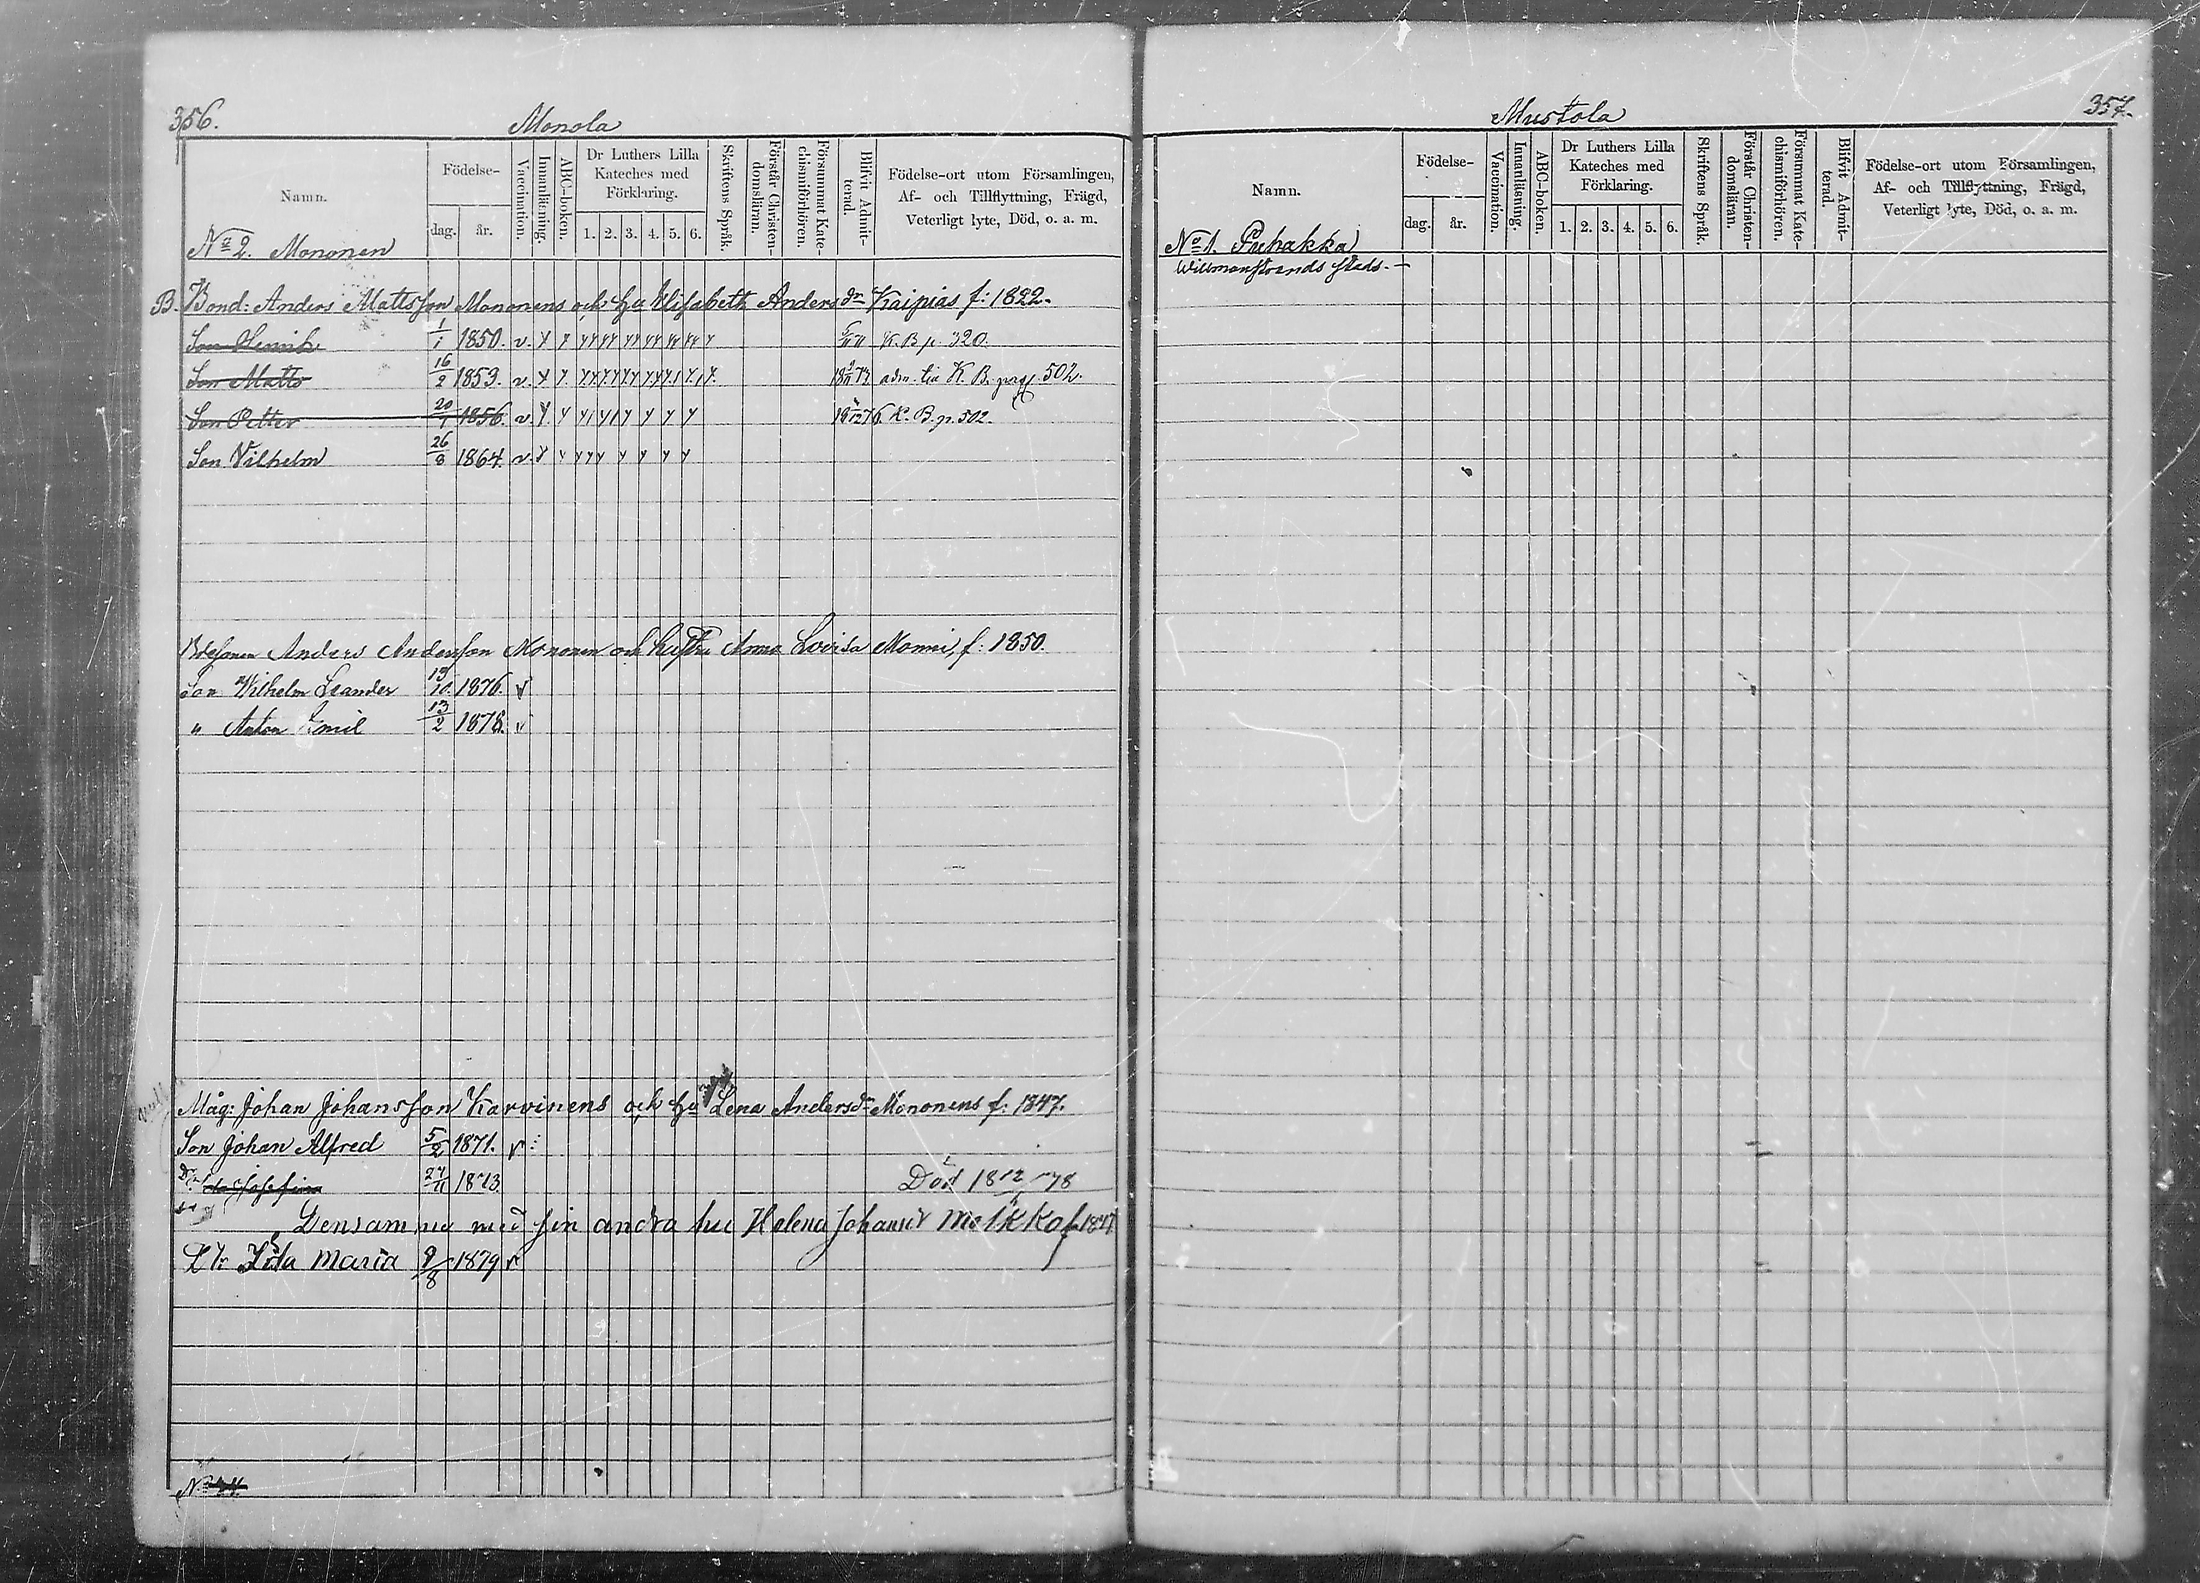 356.
Monola
Namn.
Födelse-
dag.
år.
Vaccination.
Innanläsning.
ABC-boken.
Dr Luthers Lilla
Kateches med
Förklaring.
1. 2. 3. 4. 5. 6.
Skriftens Språk.
Förstår Christen-
domsläran.
Försummat Kate-
chismiförhören.
Blifvit Admit-
terad.
Födelse-ort utom Församlingen,
Af- och Tillflyttning, Frägd,
Veterligt lyte, Död, o. a. m.
No 2. Mononen
B. Bond: Anders Mattsson Mononens och hu Elisabeth Anders dr Kaipias f: 1822.
Son Henrik 1/1 1850. v. K. B p. 320.
Son Matts 16/2 1853. v. K. B. pag. 502.
Son Petter 20/1 1856. v. K. B. p. 502.
Son Vilhelm 26/8 1864 v.
Anders Andersson Mononen och hustru Anna Lovisa f: 1850.
Son Vilhelm Leander 13/10 1876. v
" Anton Emil 13/2 1878. v
Måg: Johan Johansson Karvinens och hu Lena Andersdr Mononens f: 1847.
Son Johan Alfred 5/2 1871. v
Josefina 1873. Död 18 12/2 78
Densamme med sin andra hu Helena Johansdr f 1847
Dr Ida Maria 9/8 1879 v
Mustola
357.
Namn.
Födelse-
dag.
år.
Vaccination.
Innanläsning.
ABC-boken.
Dr Luthers Lilla
Kateches med
Förklaring.
1. 2. 3. 4. 5. 6.
Skriftens Språk.
Förstår Christen-
domsläran.
Försummat Kate-
chismiförhören.
Blifvit Admit-
terad.
Födelse-ort utom Församlingen,
Af- och Tillflyttning, Frägd,
Veterligt lyte, Död, o. a. m.
No 1. Pahakka
Willmanstrands stads. —